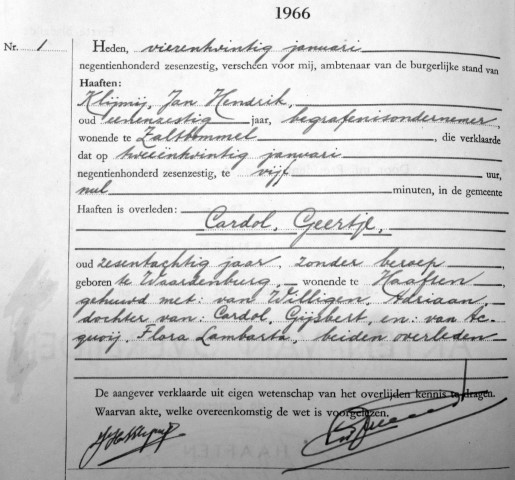 1966
Nr. 1
Heden, vierentwintig januari
negentienhonderd zesenzestig, verscheen voor mij, ambtenaar van de burgerlijke stand van
Haaften:
Klijnij, Jan Hendrik,
oud eenenzestig jaar, begrafenisondernemer,
wonende te Zaltbommel, die verklaarde
dat op tweeëntwintig januari
negentienhonderd zesenzestig, te vijf uur,
nul minuten, in de gemeente
Haaften is overleden:
Cardol, Geertje,
oud zesentachtig jaar, zonder beroep,
geboren te Waardenburg, wonende te Haaften
gehuwd met: van Willigen, Adriaan,
dochter van: Cardol, Gijsbert, en: van Ac-
quoij, Flora Lamberta, beiden overleden
De aangever verklaarde uit eigen wetenschap van het overlijden kennis te dragen.
Waarvan akte, welke overeenkomstig de wet is voorgelezen.
HAAFTEN